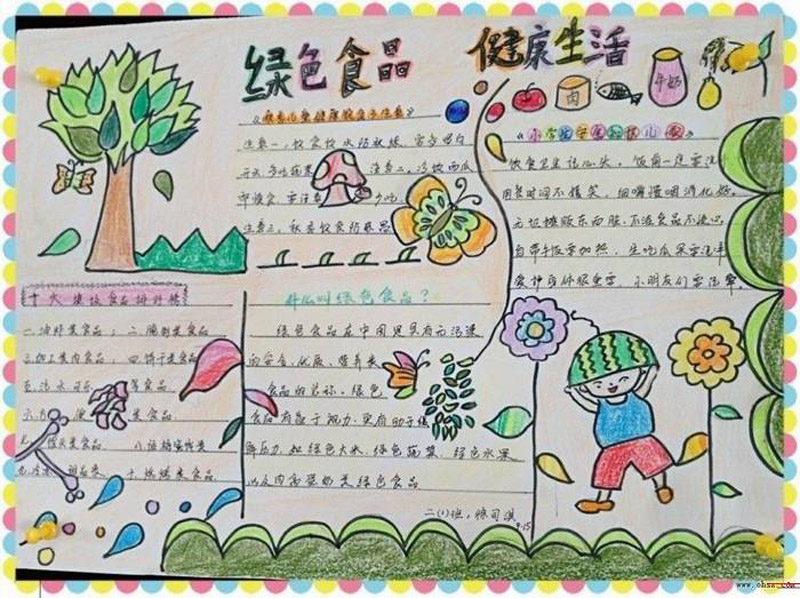 绿色食品 健康生活
肉 牛奶
《秋季儿童健康饮食多注意》
注意一、饮食饮水防
开水 多吃蔬菜 注意二、冷饮西瓜
即 食 要注意 少吃
注意三、秋季饮食防
《小学生食品安全儿歌》
饮食卫生记心头, 饭前一定要洗手
用餐时间不嬉笑, 细嚼慢咽消化好。
无证摊贩东西脏, 不洁食品不
自带手饭要加热, 生吃瓜果要洗净
爱护身体很重要, 小朋友们要记牢。
十大垃圾食品排行榜
一、油炸类食品; 二、腌制类食品
三、加工类肉食品; 四、饼干类食品
五、汽水可乐 等食品
六、方 便 类食品
七、罐头类食品 八、话梅蜜饯类
九、冷冻 甜品类 十、烧烤类食品
什么叫绿色食品?
绿色食品在中国是具有无污染
的安全、优质、营养类
食品的总称。绿色
食品有益于视力,更有助于缓
解压力。如绿色大米、绿色蔬菜、绿色水果
以及肉禽蛋奶类绿色食品
二(1)班、
9-15